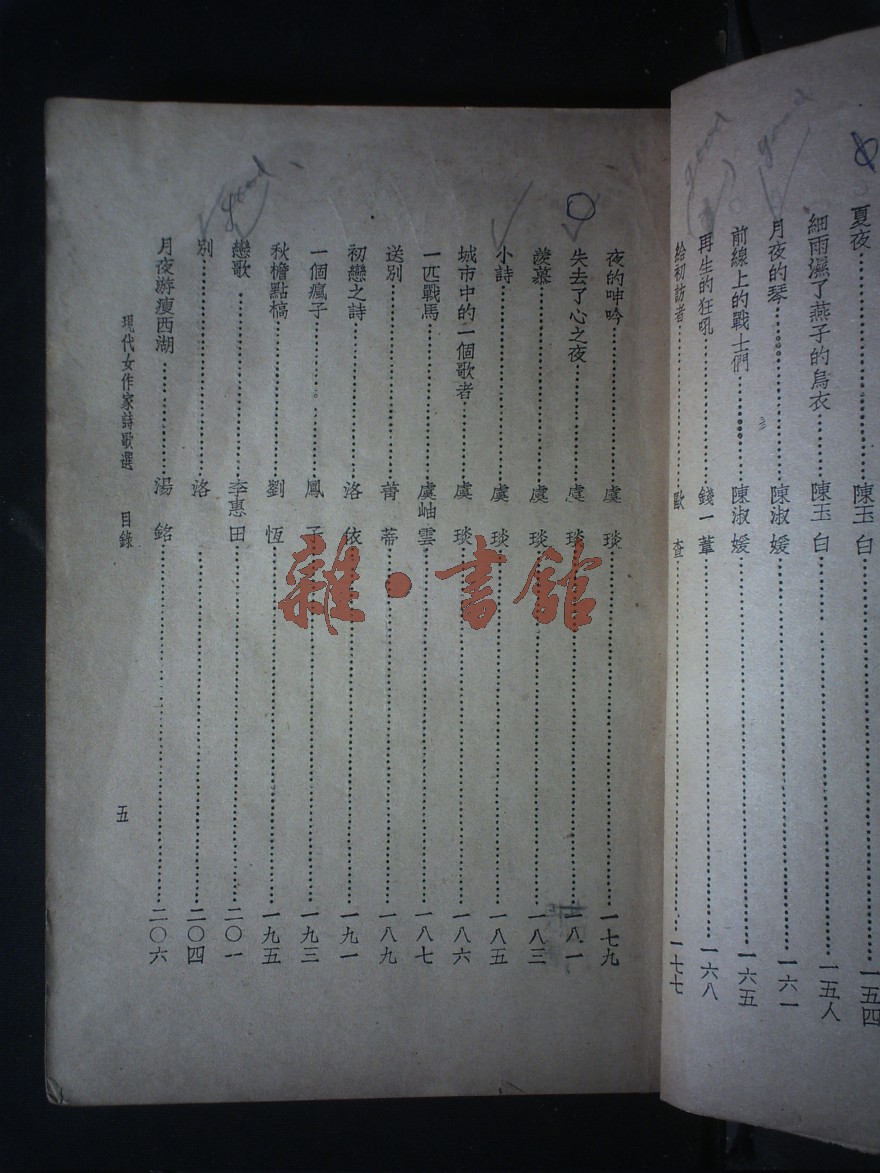 夏夜……陳玉白……一五四
細雨濕了燕子的烏衣……陳玉白……一五人
月夜的琴……陳淑媛……一六一
前線上的戰士們……陳淑媛……一六五
再生的狂吼……錢一葦……一六八
給初訪者……歐查……一七七
good
good
夜的呻吟……虞琰……一七九
失去了心之夜……虞琰……一八一
羨慕……虞琰……一八三
小詩……虞琰……一八五
城市中的一個歌者……虞琰……一八六
一匹戰馬……虞岫雲……一八七
送別……菁蒂……一八九
初戀之詩……洛依……一九一
一個瘋子……鳳子……一九三
秋檐點槁……劉恆……一九五
戀歌……李惠田……二〇一
別……洛……二〇四
月夜游瘦西湖……湯銘……二〇六
good
現代女作家詩歌選 目錄
五
雜·書館